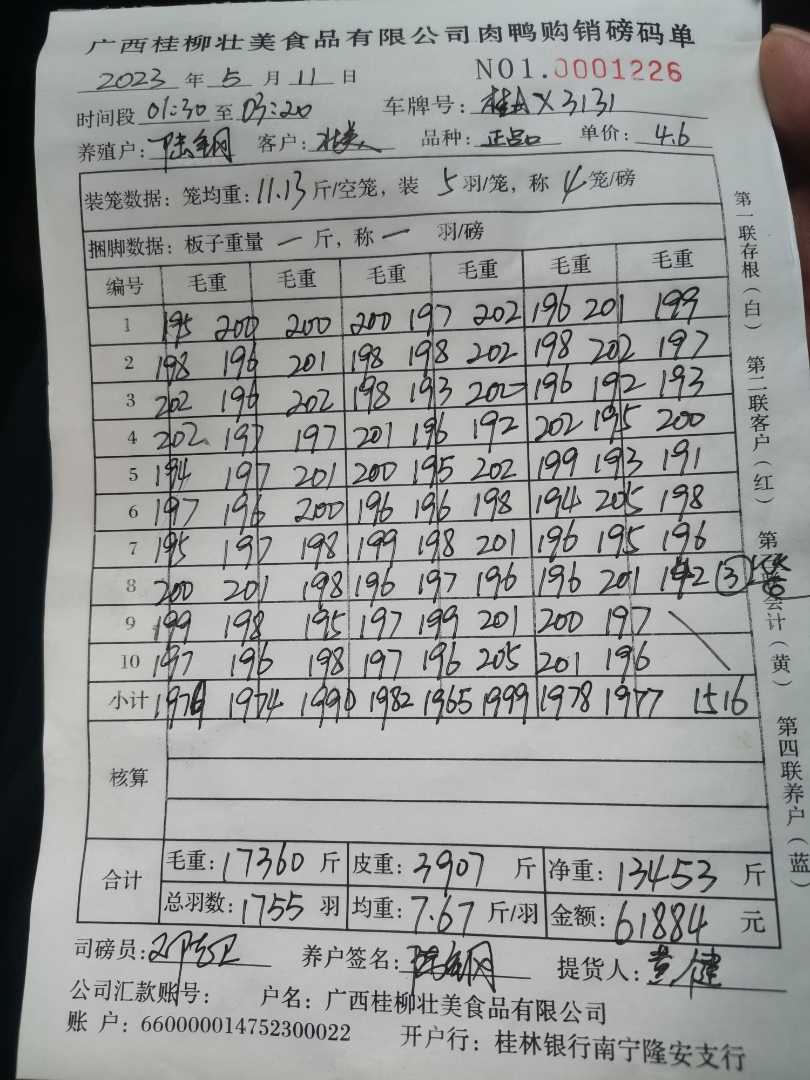 广西桂柳壮美食品有限公司肉鸭购销磅码单
2023 年 5 月 11 日 NO1.0001226
时间段 01:30 至 03:20 车牌号: 桂AX3131
养殖户: 陆钢 客户: 壮美 品种: 正品 单价: 4.6
装笼数据: 笼均重: 11.13 斤/空笼, 装 5 羽/笼, 称 4 笼/磅
捆脚数据: 板子重量 一 斤, 称 一 羽/磅
编号 毛重 毛重 毛重 毛重 毛重 毛重
1 195 200 200 200 197 202 196 201 199
2 198 196 201 198 198 202 198 202 197
3 202 196 202 198 193 202 196 192 193
4 202 197 197 201 196 192 202 195 200
5 194 197 201 200 195 202 199 193 191
6 197 196 200 196 196 198 194 205 198
7 195 197 198 199 198 201 196 195 196
8 200 201 198 196 197 196 196 201 142 ③
9 199 198 195 197 199 201 200 197
10 197 196 198 197 196 205 201 196
小计 1979 1974 1990 1982 1965 1999 1978 1977 1516
核算
合计 毛重: 17360 斤 皮重: 3907 斤 净重: 13453 斤
总羽数: 1755 羽 均重: 7.67 斤/羽 金额: 61884 元
司磅员: 养户签名: 陆钢 提货人: 黄健
公司汇款账号: 户名: 广西桂柳壮美食品有限公司
账 户: 660000014752300022 开户行: 桂林银行南宁隆安支行
第一联存根(白) 第二联客户(红) 第三联会计(黄) 第四联养户(蓝)